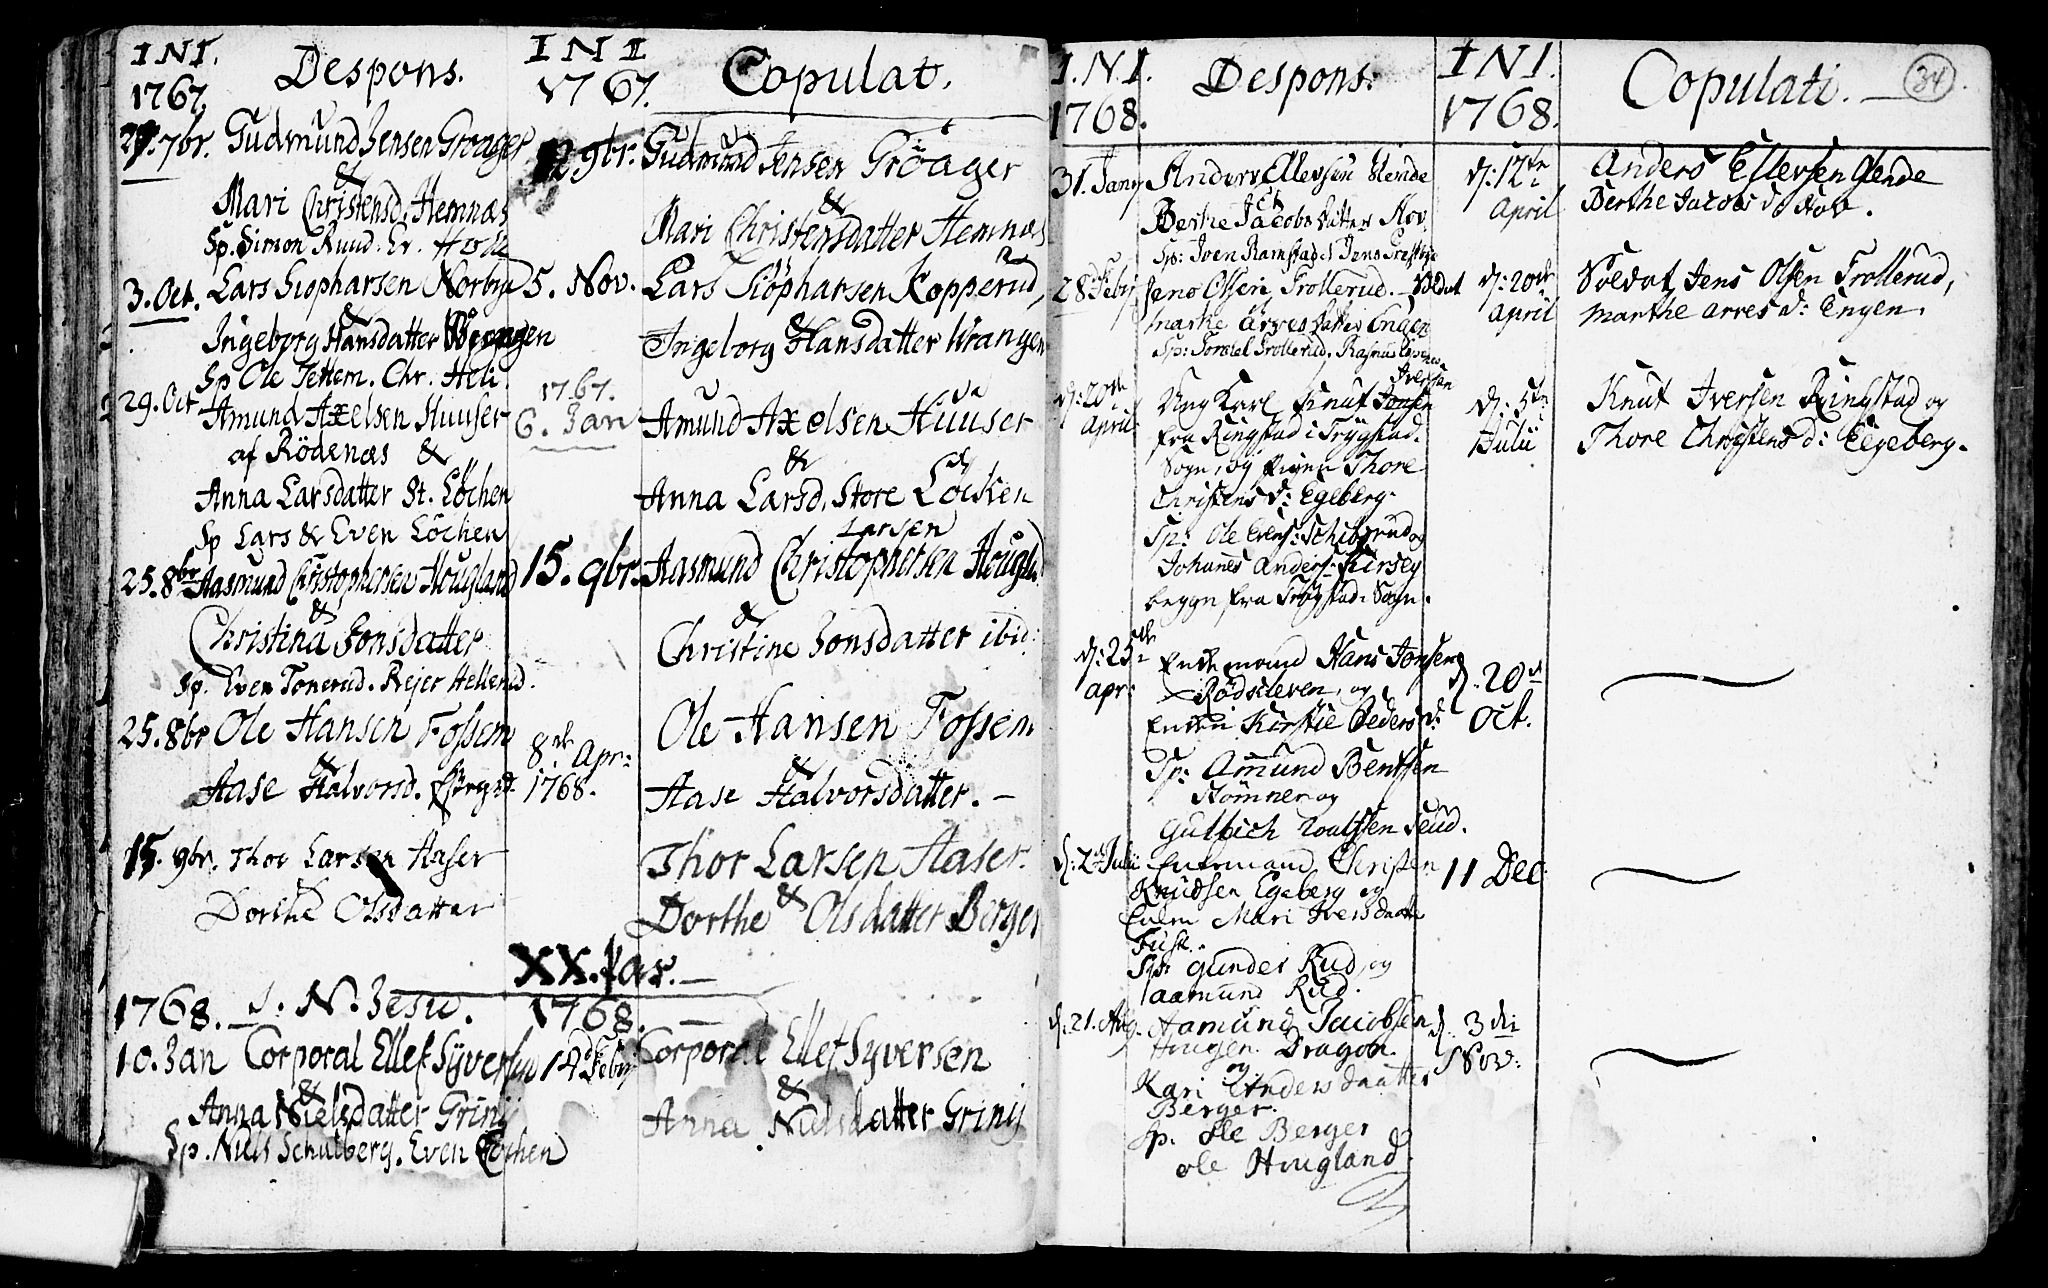 INI.
1767.
Despons.
INI
1767.
Copulat.
7br. Gudmund Jensen Groager
&
Mari Christensd. Hemnæs
Sp. Simon Ruud. Er.
3. Oct. Lars Siopharsen Norbye
&
Ingeborg Hansdatter Wrangen
Sp Ole Tettem. Chr. Heli.
29. Oct Amund Axelsen Huuser
af Rödenæs &
Anna Larsdatter St. Löchen
Sp Lars & Even Löchen
25. 8br Aasmund Christophersen Hougland
&
Christina Jonsdatter
Sp. Even Tonerud. Rejer Hellerud.
25. 8br Ole Hansen Fossem
&
Aase Halvorsd.
15. 9br. Thor Larsen Haser
&
Dorthe Olsdatter
1768. I. N. Jesu.
10. Jan Corporal Ellef Syversen
&
Anna Nielsdatter Grinij
Sp. Niels Schulberg. Even Löchen
12 9br. Gudmund Jensen Gröager
&
Mari Christensdatter Hemnæs
5. Nov. Lars Siöpharsen Kopperud,
&
Ingeborg Hansdatter Wrangen
1767.
6. Jan Amund Axelsen Huuser
&
Anna Larsd. Store Löcken
Larsen
15. 9br. Aasmund Christophersen Hougla
&
Christine Jonsdatter ibid:
8de Apr: 1768. Ole Hansen Fossem
&
Aase Halvorsdatter. —
Thor Larsen Haser.
&
Dorthe Olsdatter Berger
XX. Par. —
1768. —
14 Febr Corporal Ellef Syversen
&
Anna Nielsdatter Grinij
I.N.I.
1768.
Despons:
INI.
1768.
Copulati. —
34
31. Janv Anders Ellevsen Glende
og
Berthe Jacobsdatter Hov.
Sp: Iven Ramstad
28 Febr Jens Olsen Trollerud. Soldat
Marthe Arvesdatter Engen
Sp: Torstel Trollerud. Rasmus
d: 20de April Ung Karl Knut Jonsen
Iversen
fra Ringstad i Trygstad
Sogn, og Pigen Thore
Christensd: Egeberg.
Sp: Ole Evens: Schibsrud og
Johanes Anders: Kirseg
begge fra Trygstad Sogn.
d: 25de apr: Enkemand Hans Jonsen
Rödskleven, og
Enken Kirstie Peders d:
Sp: Amund Bentsen
Stömner og
Gulbich Roalfsen
d: 2de Julii Enkemand Christen
Knudsen Egeberg og
Enken Mari Iversdaatter
Fusk.
Sp: Gunder Rud, og
Aamund Rud.
d: 21. Aug. Aamund Jacobsen
Hougen. Dragon.
og
Kari Andersdaatter
Berger.
Sp. Ole Berger
Ole Hougland.
d: 12te April Anders Ellefsen Glende
Berthe Jacobsd Hov.
d: 20de April Soldat Jens Olsen Trollerud,
Marthe Arresd: Engen.
d: 5te Julii Knut Iversen Ringstad og
Thore Christensd: Egeberg.
d. 20de Oct.
11 Dec:
d. 3die Nov: